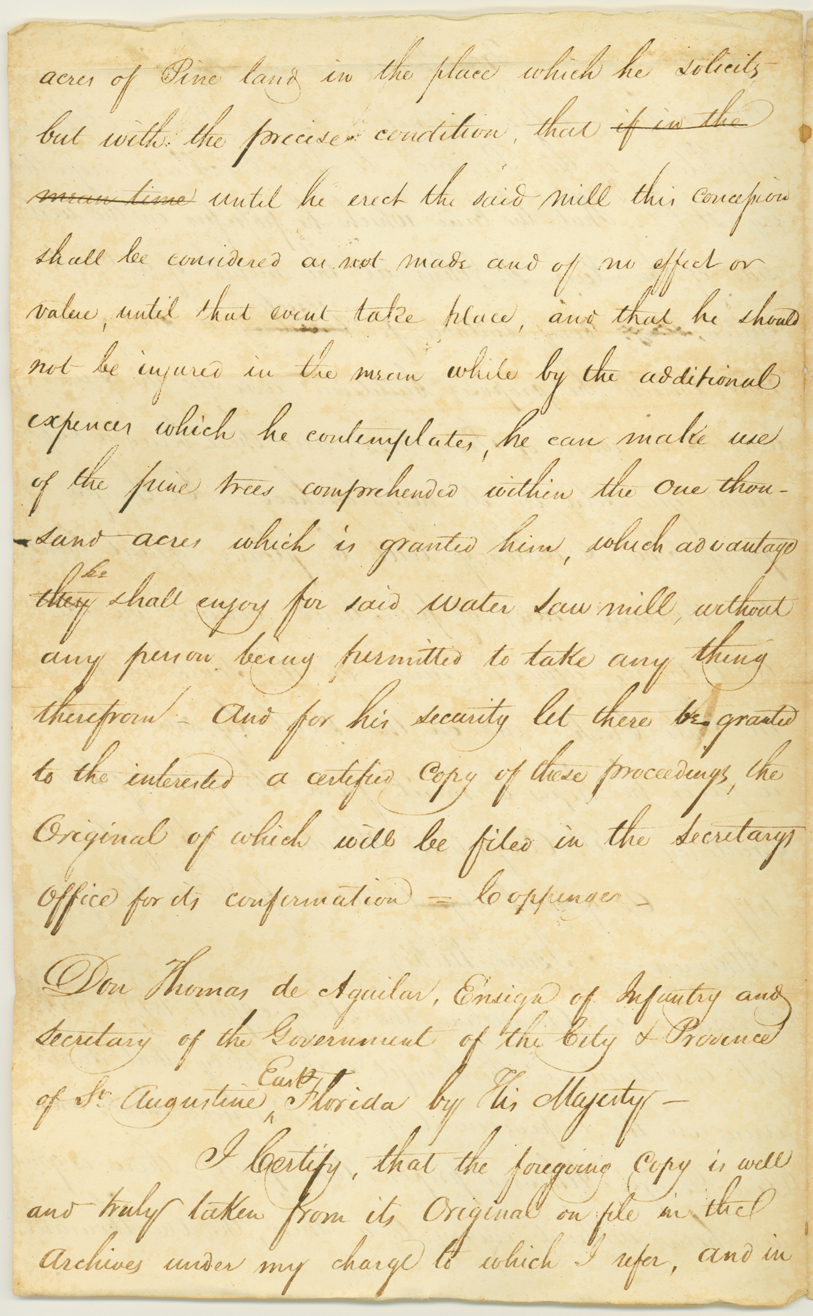 acres of Pine land in the place which he solicits
but with the precise condition, that if in the
mean time until he erect the said mill this concession
shall be considered as not made and of no effect or
value, until that event take place, and that he should
not be injured in the mean while by the additional
expences which he contemplates, he can make use
of the pine trees comprehended within the One thou-
sand acres which is granted him, which advantage
they he shall enjoy for said water saw mill, without
any person being permitted to take any thing
therefrom - And for his security let there be granted
to the interested a certified Copy of these proceedings, the
Original of which will be filed in the Secretarys
Office for its confirmation = Coppinger -
Don Thomas de Aguilar, Ensign of Infantry and
Secretary of the Government of the City & Province
of St Augustine East Florida by His Majesty -
I Certify, that the foregoing Copy is well
and truly taken from its Original on file in the
Archives under my charge to which I refer, and in